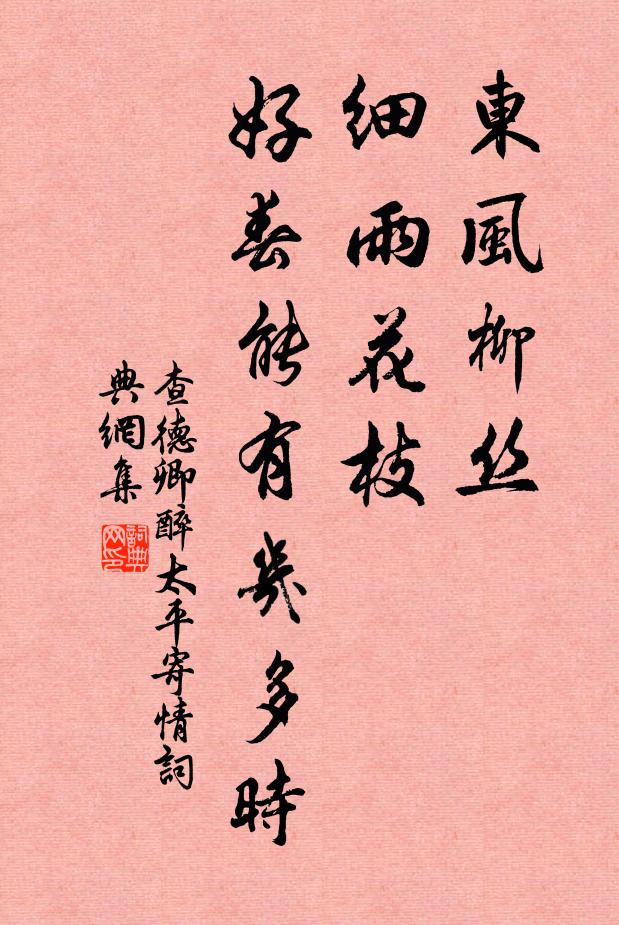 東風柳丝
細雨花枝
好春能有幾多時
查德卿醉太平寄情詞
典網集
詞典网印